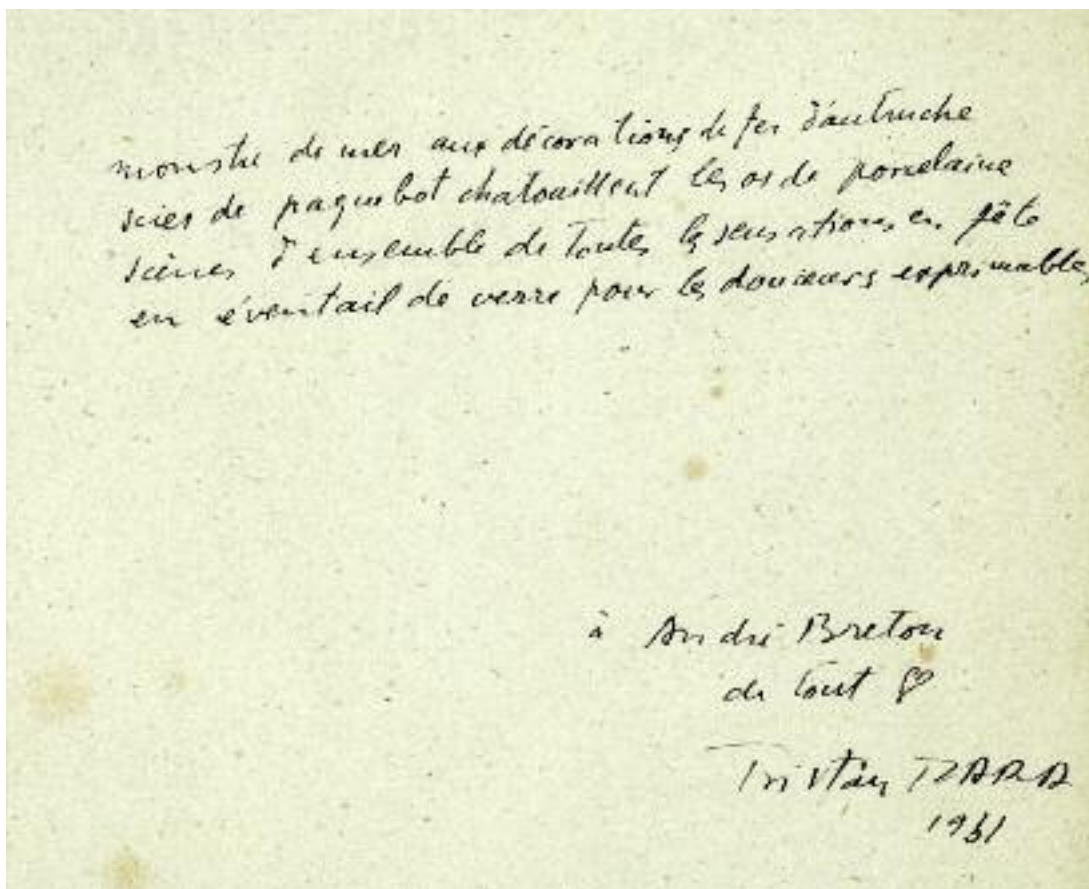 monstre de mer aux décorations de fer d'autruche
scies de paquebot chatouillent les os de porcelaine
scènes d'ensemble de toutes les sensations en fête
en éventail de verre pour les douceurs exprimables
à André Breton
de tout ♡
Tristan TZARA
1931